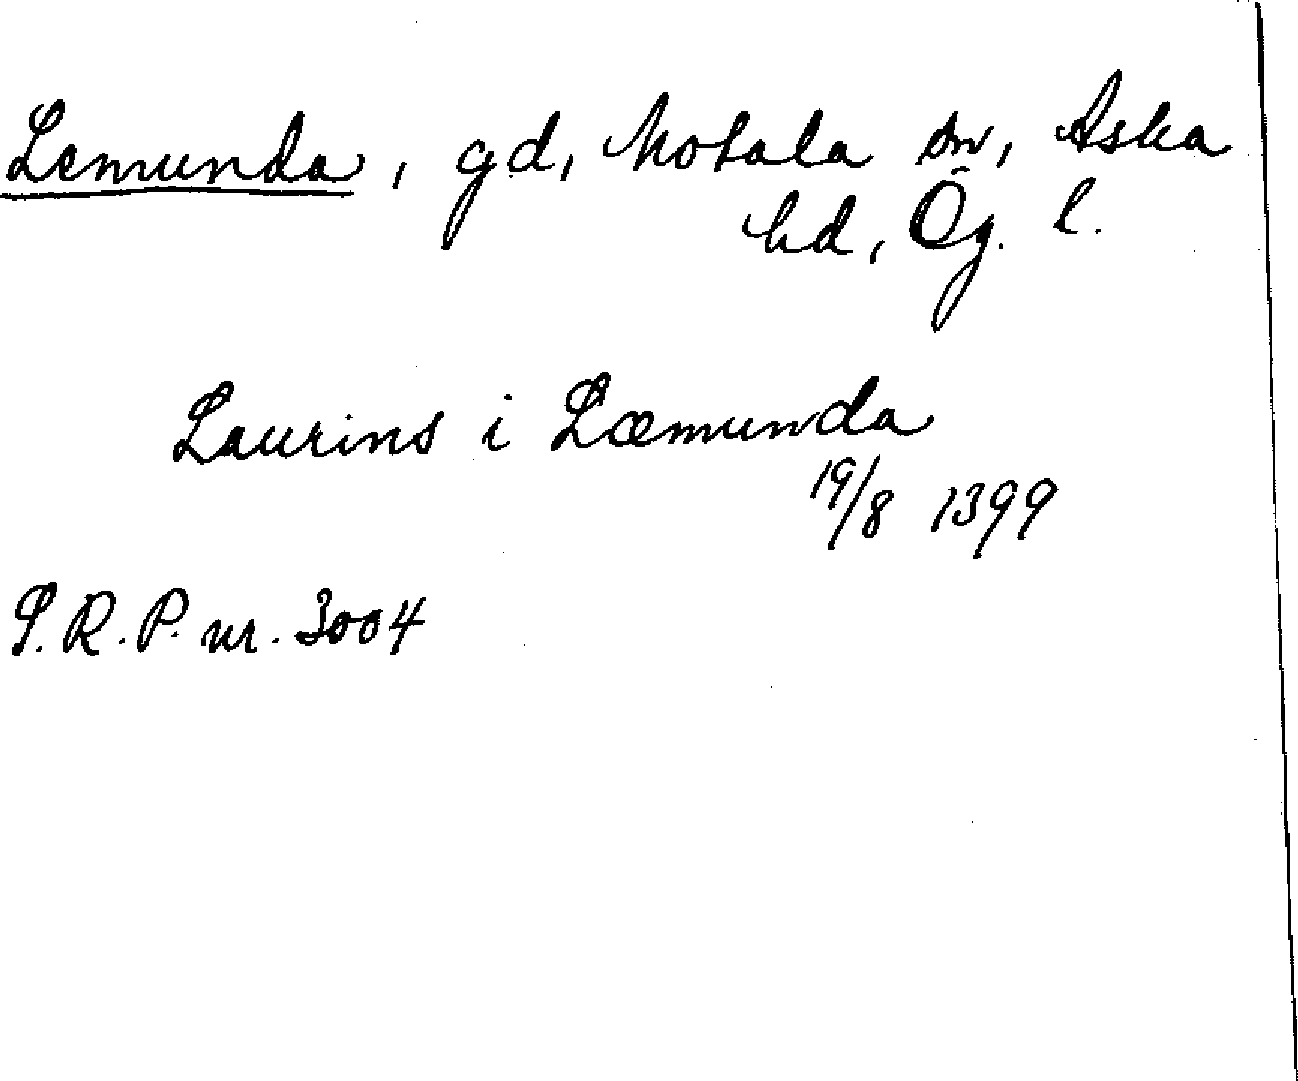 Lemunda, gd, Motala sn, Aska
hd, Ög. l.
Laurins i Læmunda
19/8 1399
S.R.P. nr. 3004